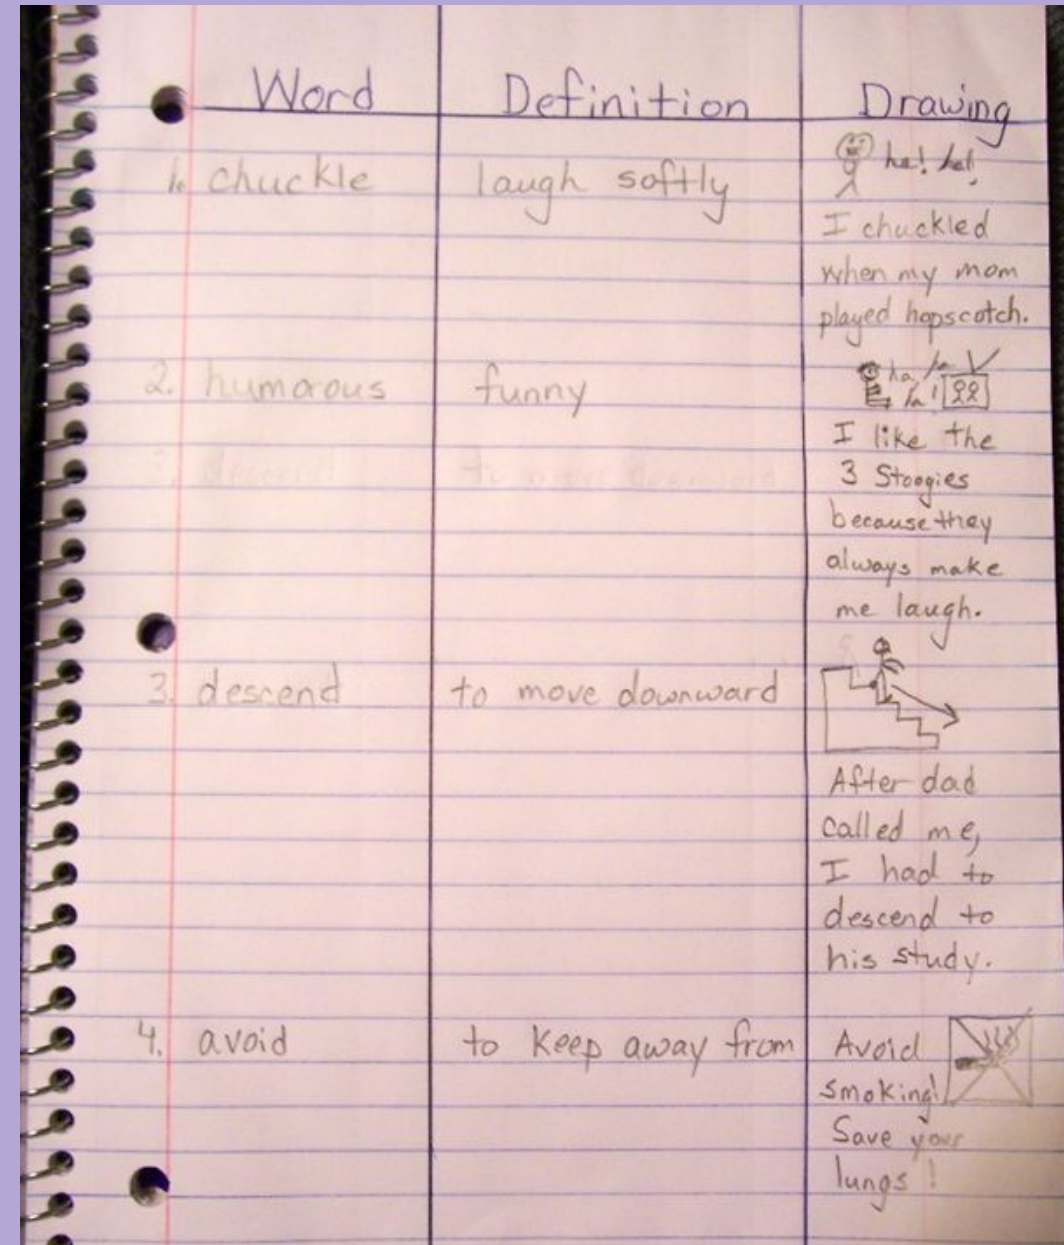 Word Definition Drawing
1. chuckle laugh softly ha! ha!
I chuckled
when my mom
played hopscotch.
2. humorous funny ha ha
ha!
I like the
3 Stoogies
because they
always make
me laugh.
3. descend to move downward
3. descend to move downward
After dad
called me,
I had to
descend to
his study.
4. avoid to keep away from Avoid
smoking!
Save your
lungs!